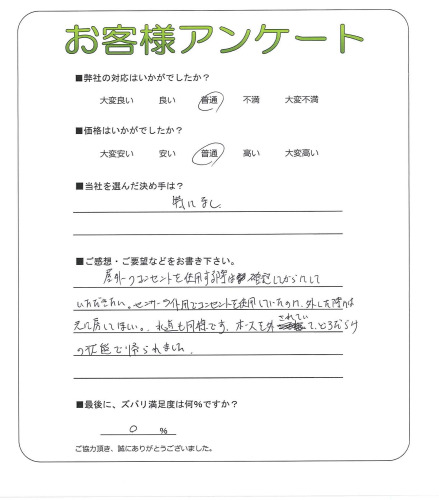 お客様アンケート
■弊社の対応はいかがでしたか?
大変良い 良い 普通 不満 大変不満
■価格はいかがでしたか?
大変安い 安い 普通 高い 大変高い
■当社を選んだ決め手は?
特になし
■ご感想・ご要望などをお書き下さい。
屋外コンセントを使用する際は確認してからにして
いただきたい。センサー作用でコンセントを使用していたのに、外した際は
元に戻してほしい。水道も同様です。ホースを外されていて、どろだらけ
の状態で帰られました。
■最後に、ズバリ満足度は何%ですか?
0 %
ご協力頂き、誠にありがとうございました。